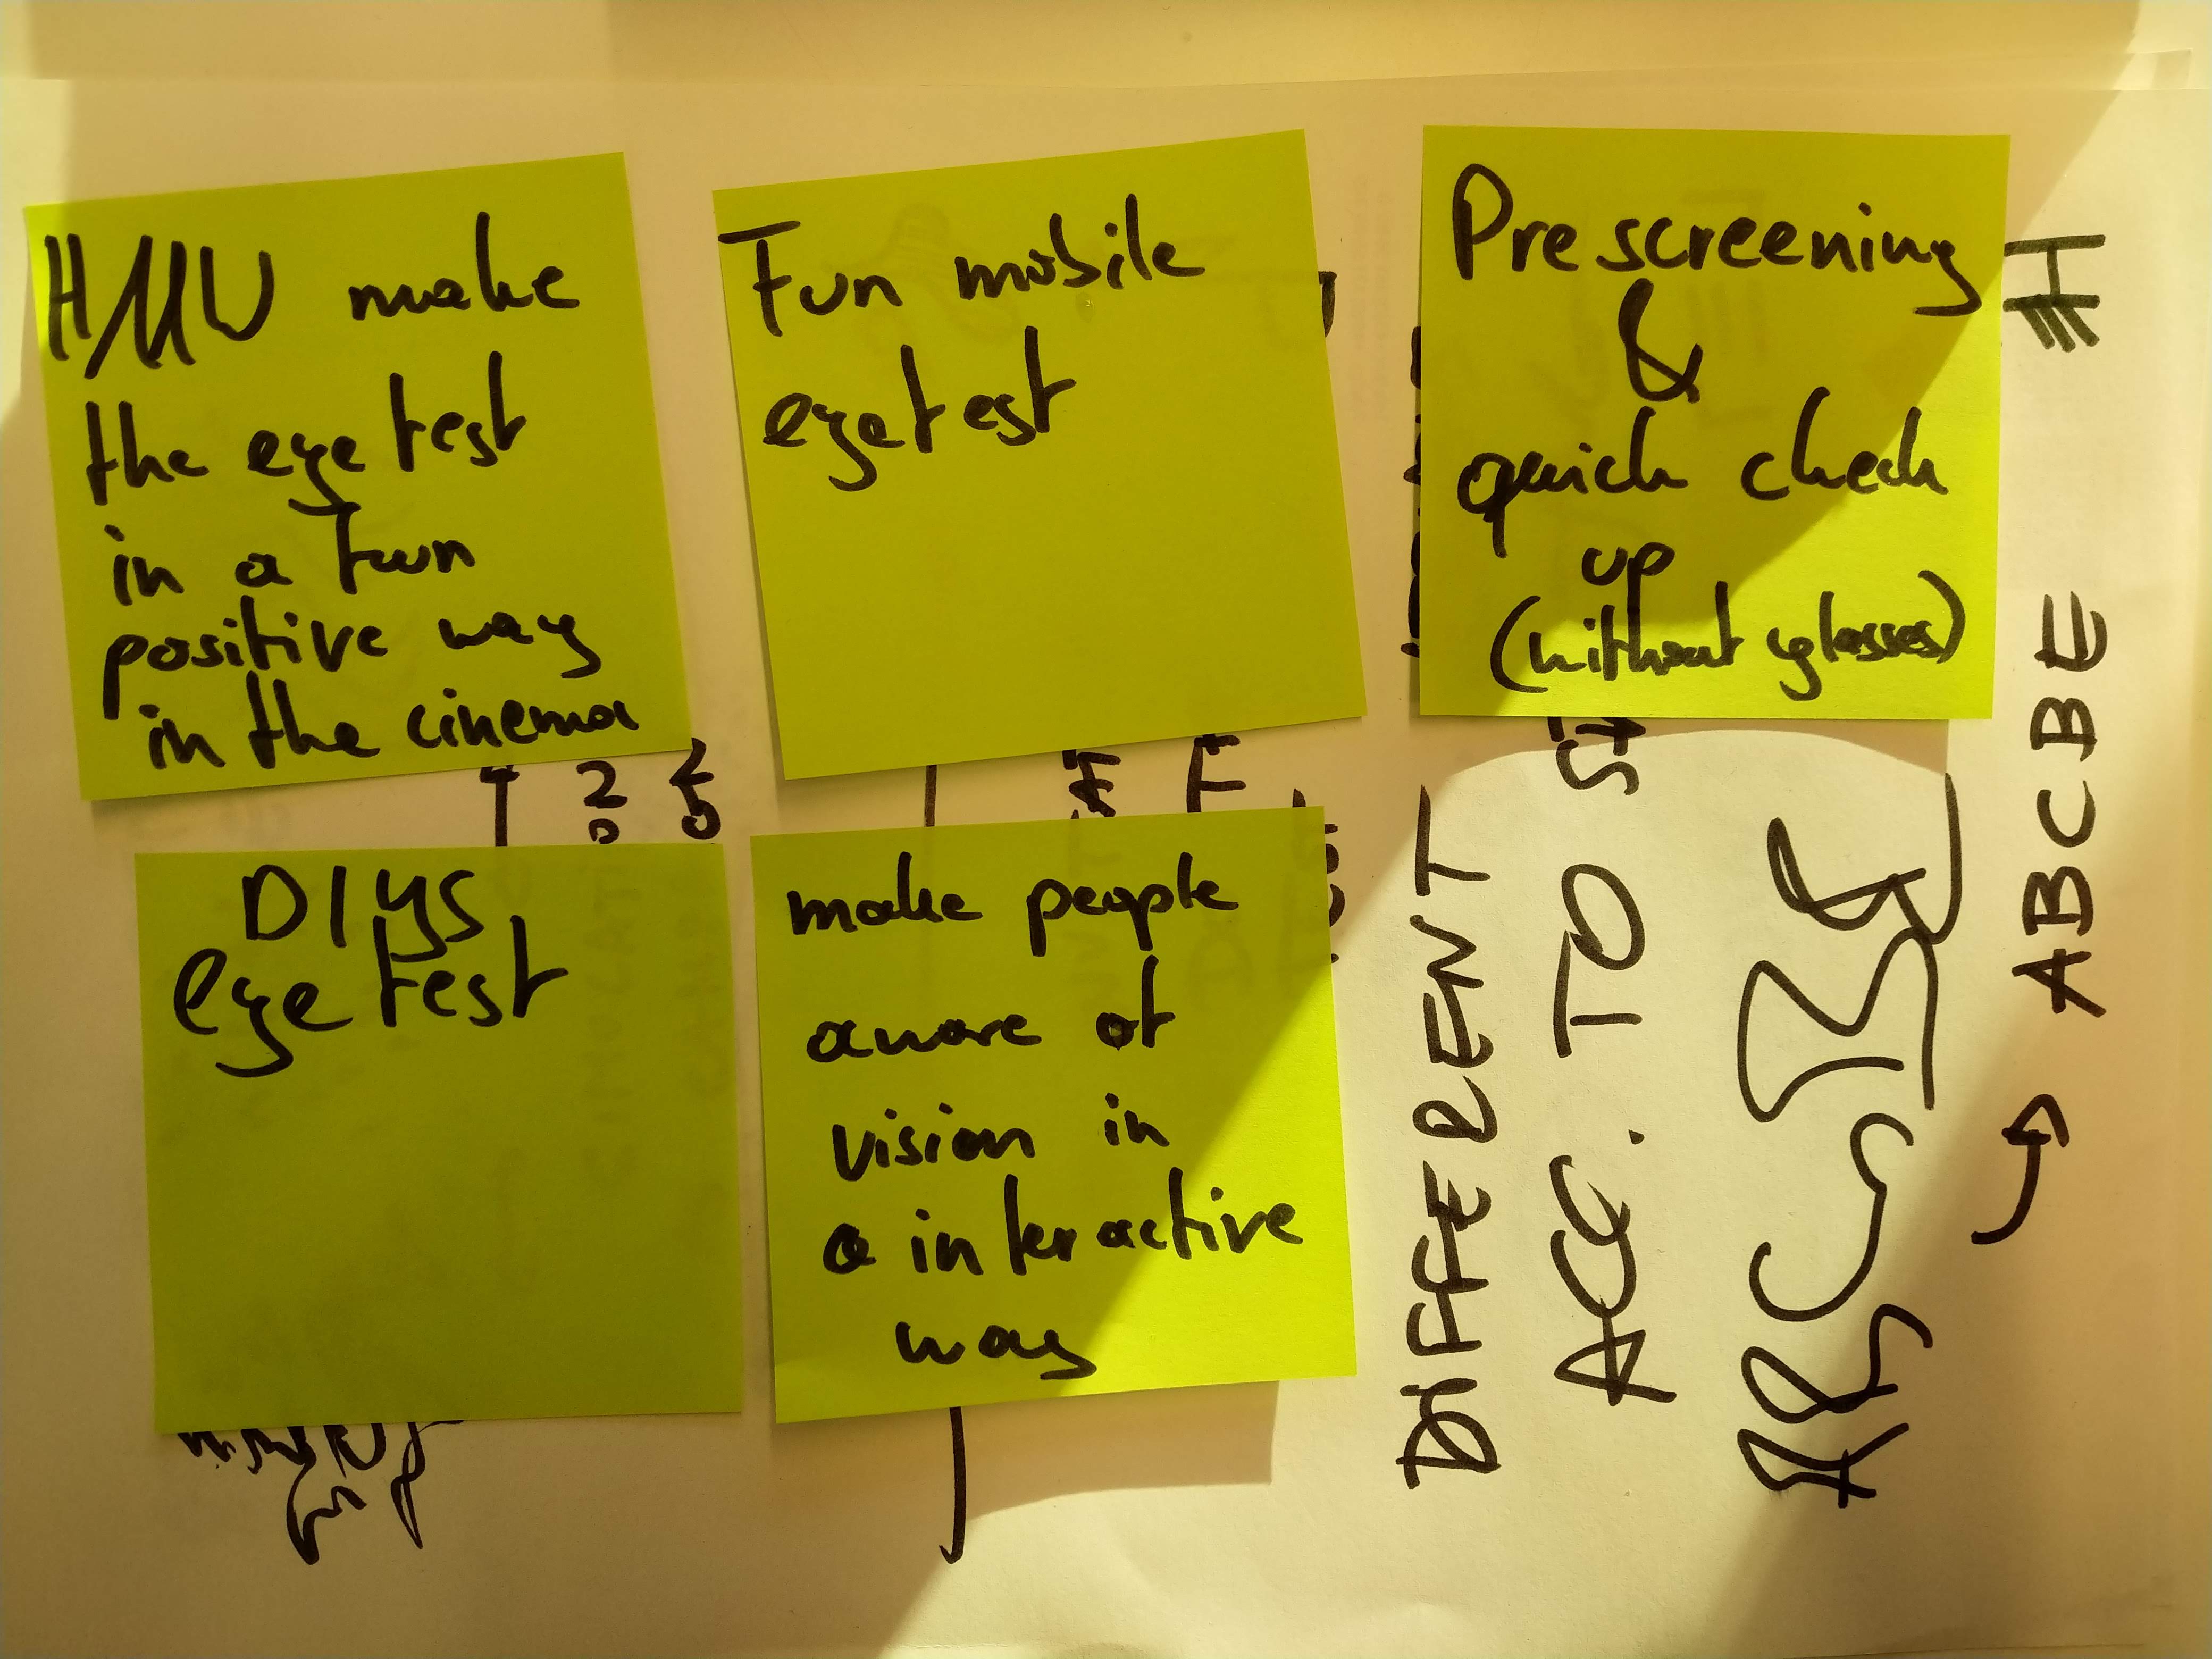 HMW make
the eye test
in a fun
positive way
in the cinema
Fun mobile
eyetest
Prescreening
&
quick check
up
(without glasses)
DIYS
eye test
make people
aware of
vision in
a interactive
way
DIFFERENT
ACC. TO
ABCBE